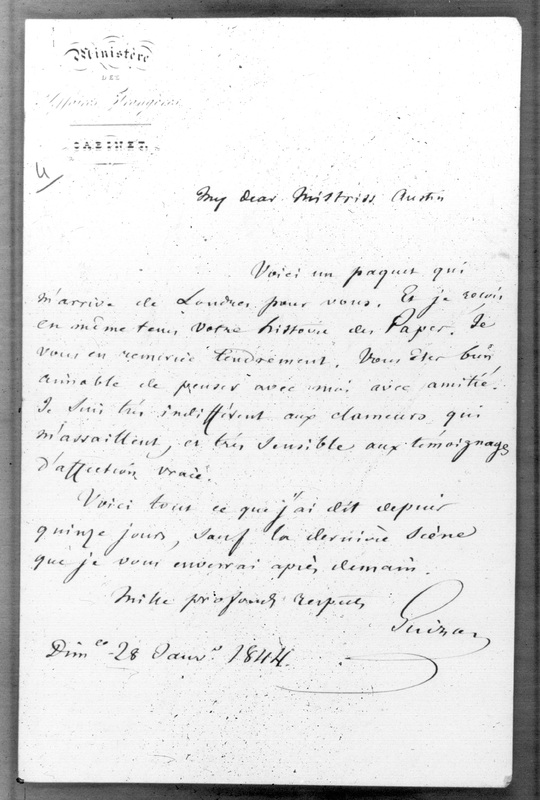 Ministère
DES
Affaires Etrangères
CABINET.
4/
My dear Mistriss Austin
Voici un paquet qui
m'arrive de Londres pour vous. Et je reçois
en même tems votre histoire des Papes. Je
vous en remercie tendrement. Vous êtes bien
aimable de penser avec moi avec amitié.
Je suis très indifférent aux clameurs qui
m'assaillent, et très sensible aux témoignages
d'affection vraie.
Voici tout ce que j'ai dit depuis
quinze jours, sauf la dernière scène
que je vous enverrai après demain.
Mille profonds respects
Guizot
Dim.co 28 Janv.r 1844.